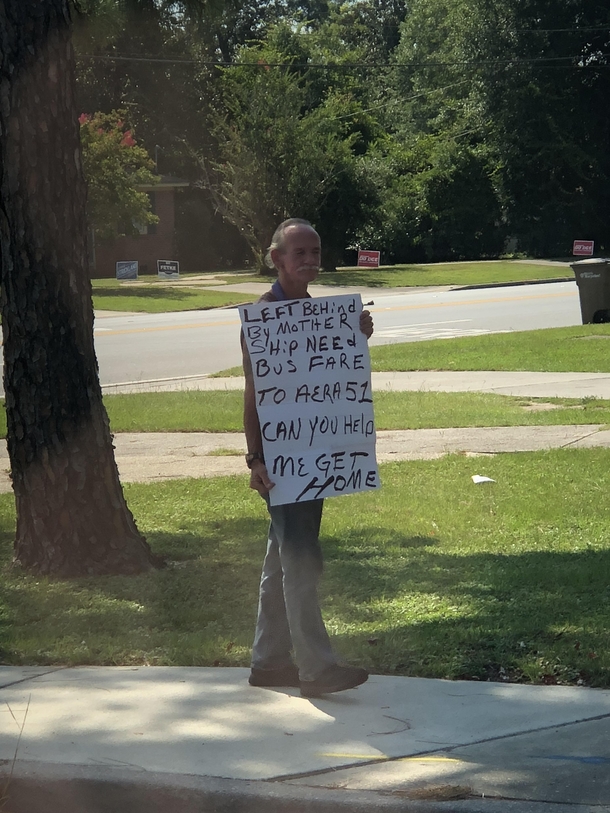 LEFT BEHind
By MOTHER
SHip NEEd
BUS FARE
TO AERA 51
CAN YOU HElp
ME GET
HOME